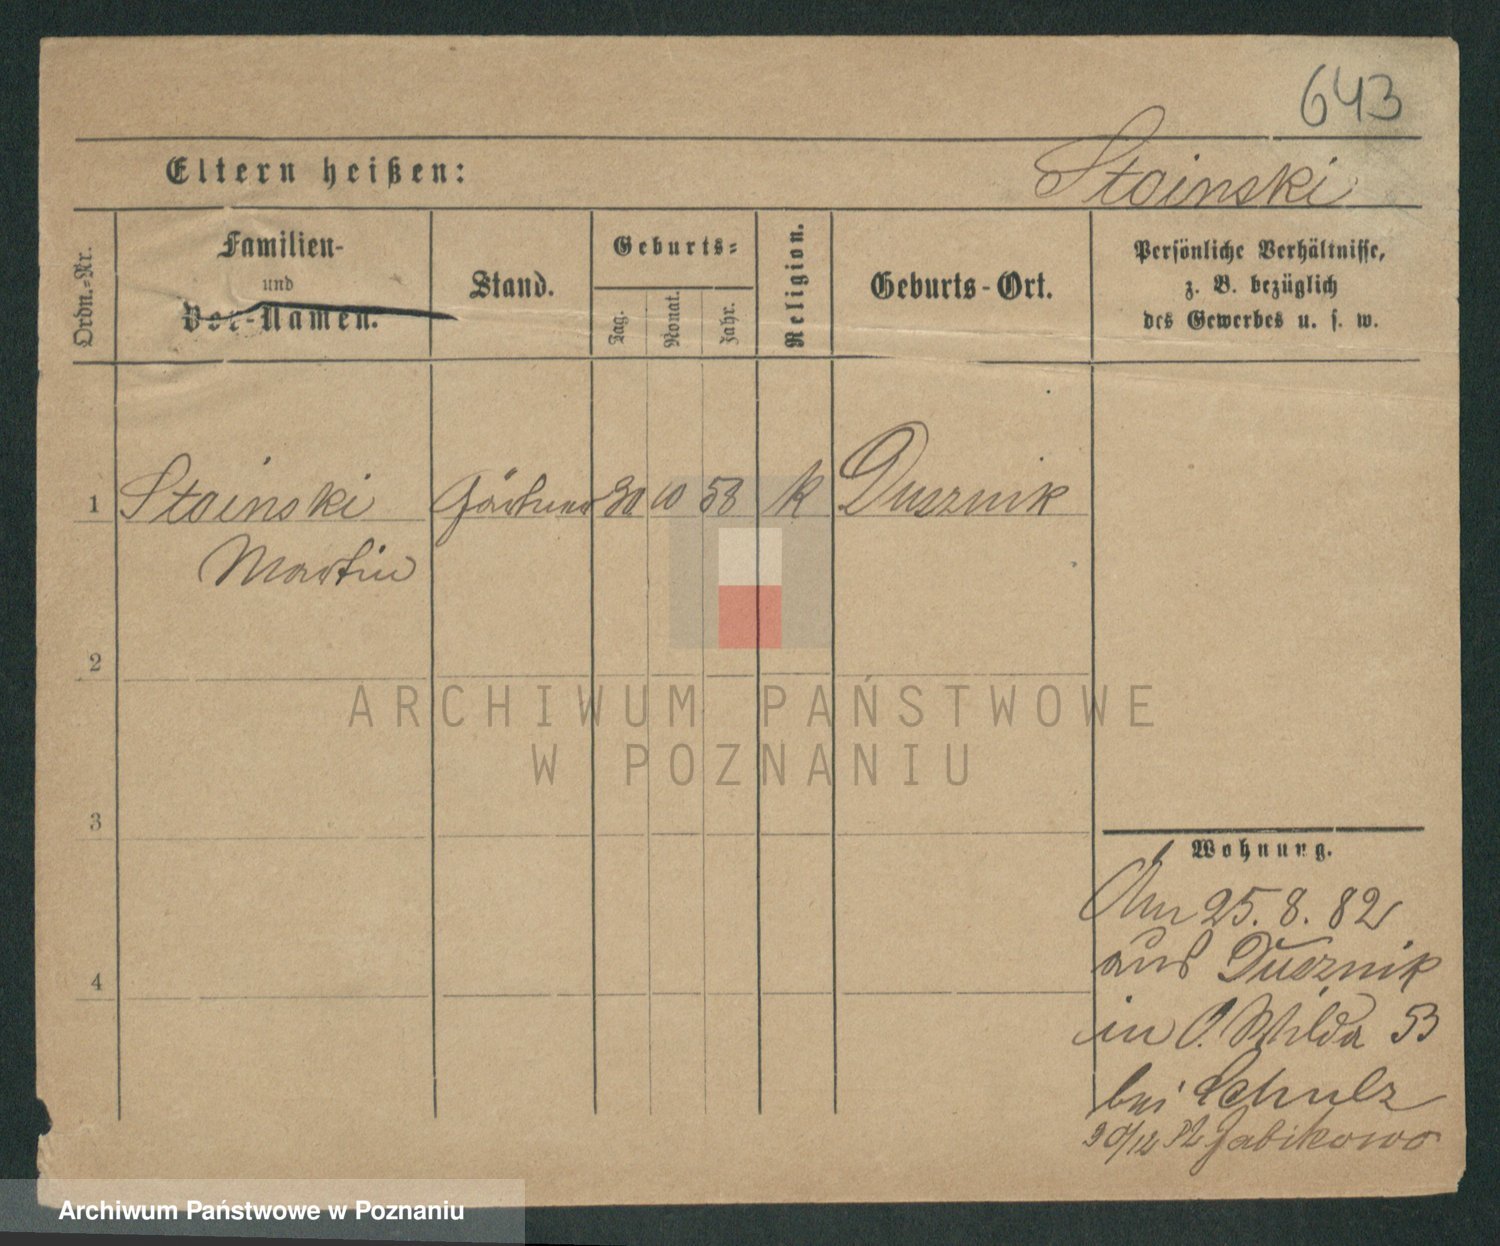 643
Eltern heißen:
Stoinski
Ordn.-Nr.
Familien-
und
Vor-Namen.
Stand.
Geburts-
Tag.
Monat.
Jahr.
Religion.
Geburts-Ort.
Persönliche Verhältnisse,
z. B. bezüglich
des Gewerbes u. s. w.
1 Stoinski Gärtner 30 10 58 k Dusznik
Martin
2
3
4
Wohnung.
Am 25. 8. 82
aus Dusznik
in O. Wilda 53
bei Schulz
30/12 82 Zabikowo
ARCHIWUM PAŃSTWOWE
W POZNANIU
Archiwum Państwowe w Poznaniu